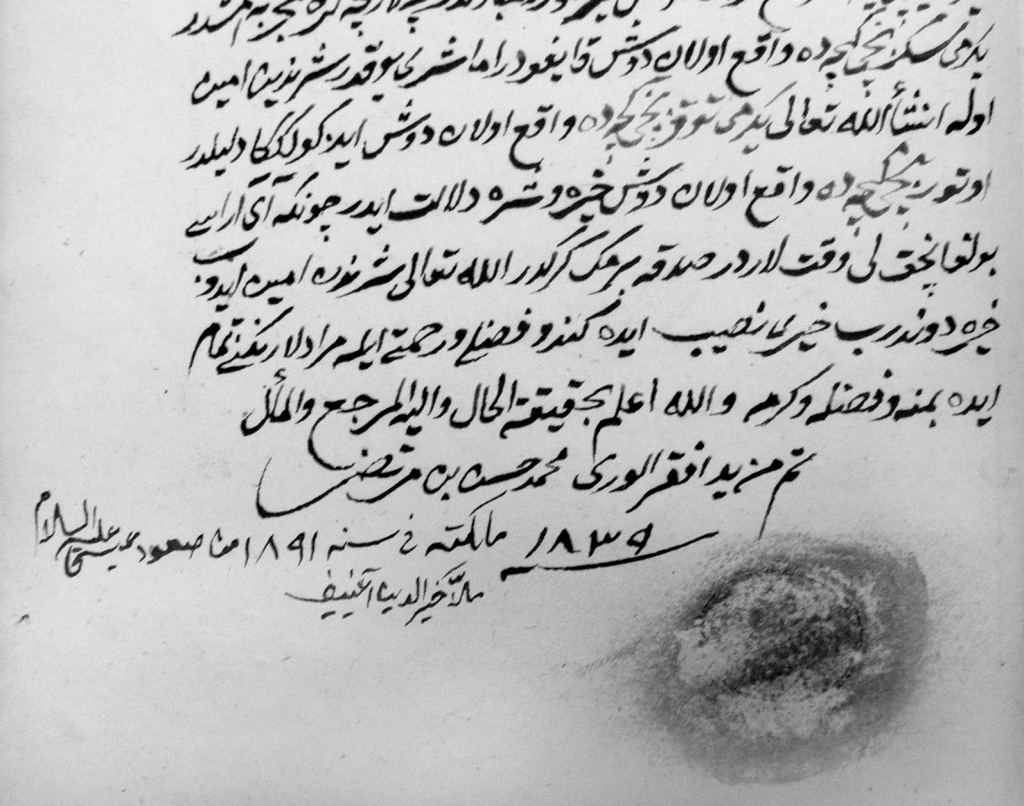 یکرمی سکزنجی کیجه ده واقع اولان دوش قایغودر اما شری یوقدر شرندین امین
اوله انشأالله تعالی یکرمی توقزنجی کیجه ده واقع اولان دوش ایذکولککا دلیلدر
اوتوزنجی کیجه ده واقع اولان دوش خیره و شره دلالت ایدر چونکه آی آراسی
بولغانجق لی وقت لاردر صدقه برمک کرکدر الله تعالی شرندن امین ایدوب
خیره دوندرب خیری نصیب ایده کندو فضلی و رحمتی ایله مرادلارینکزنی تمام
ایده بمنه و فضله و کرمه والله اعلم بحقیقة الحال والیه المرجع والمآل
تم من ید افقر الوری محمد حسن بن مرتضی
۱۸۳۹ مالکته فی سنه ۱۸۹۱ من صعود عیسی علیه السلام
ملا خیرالدین